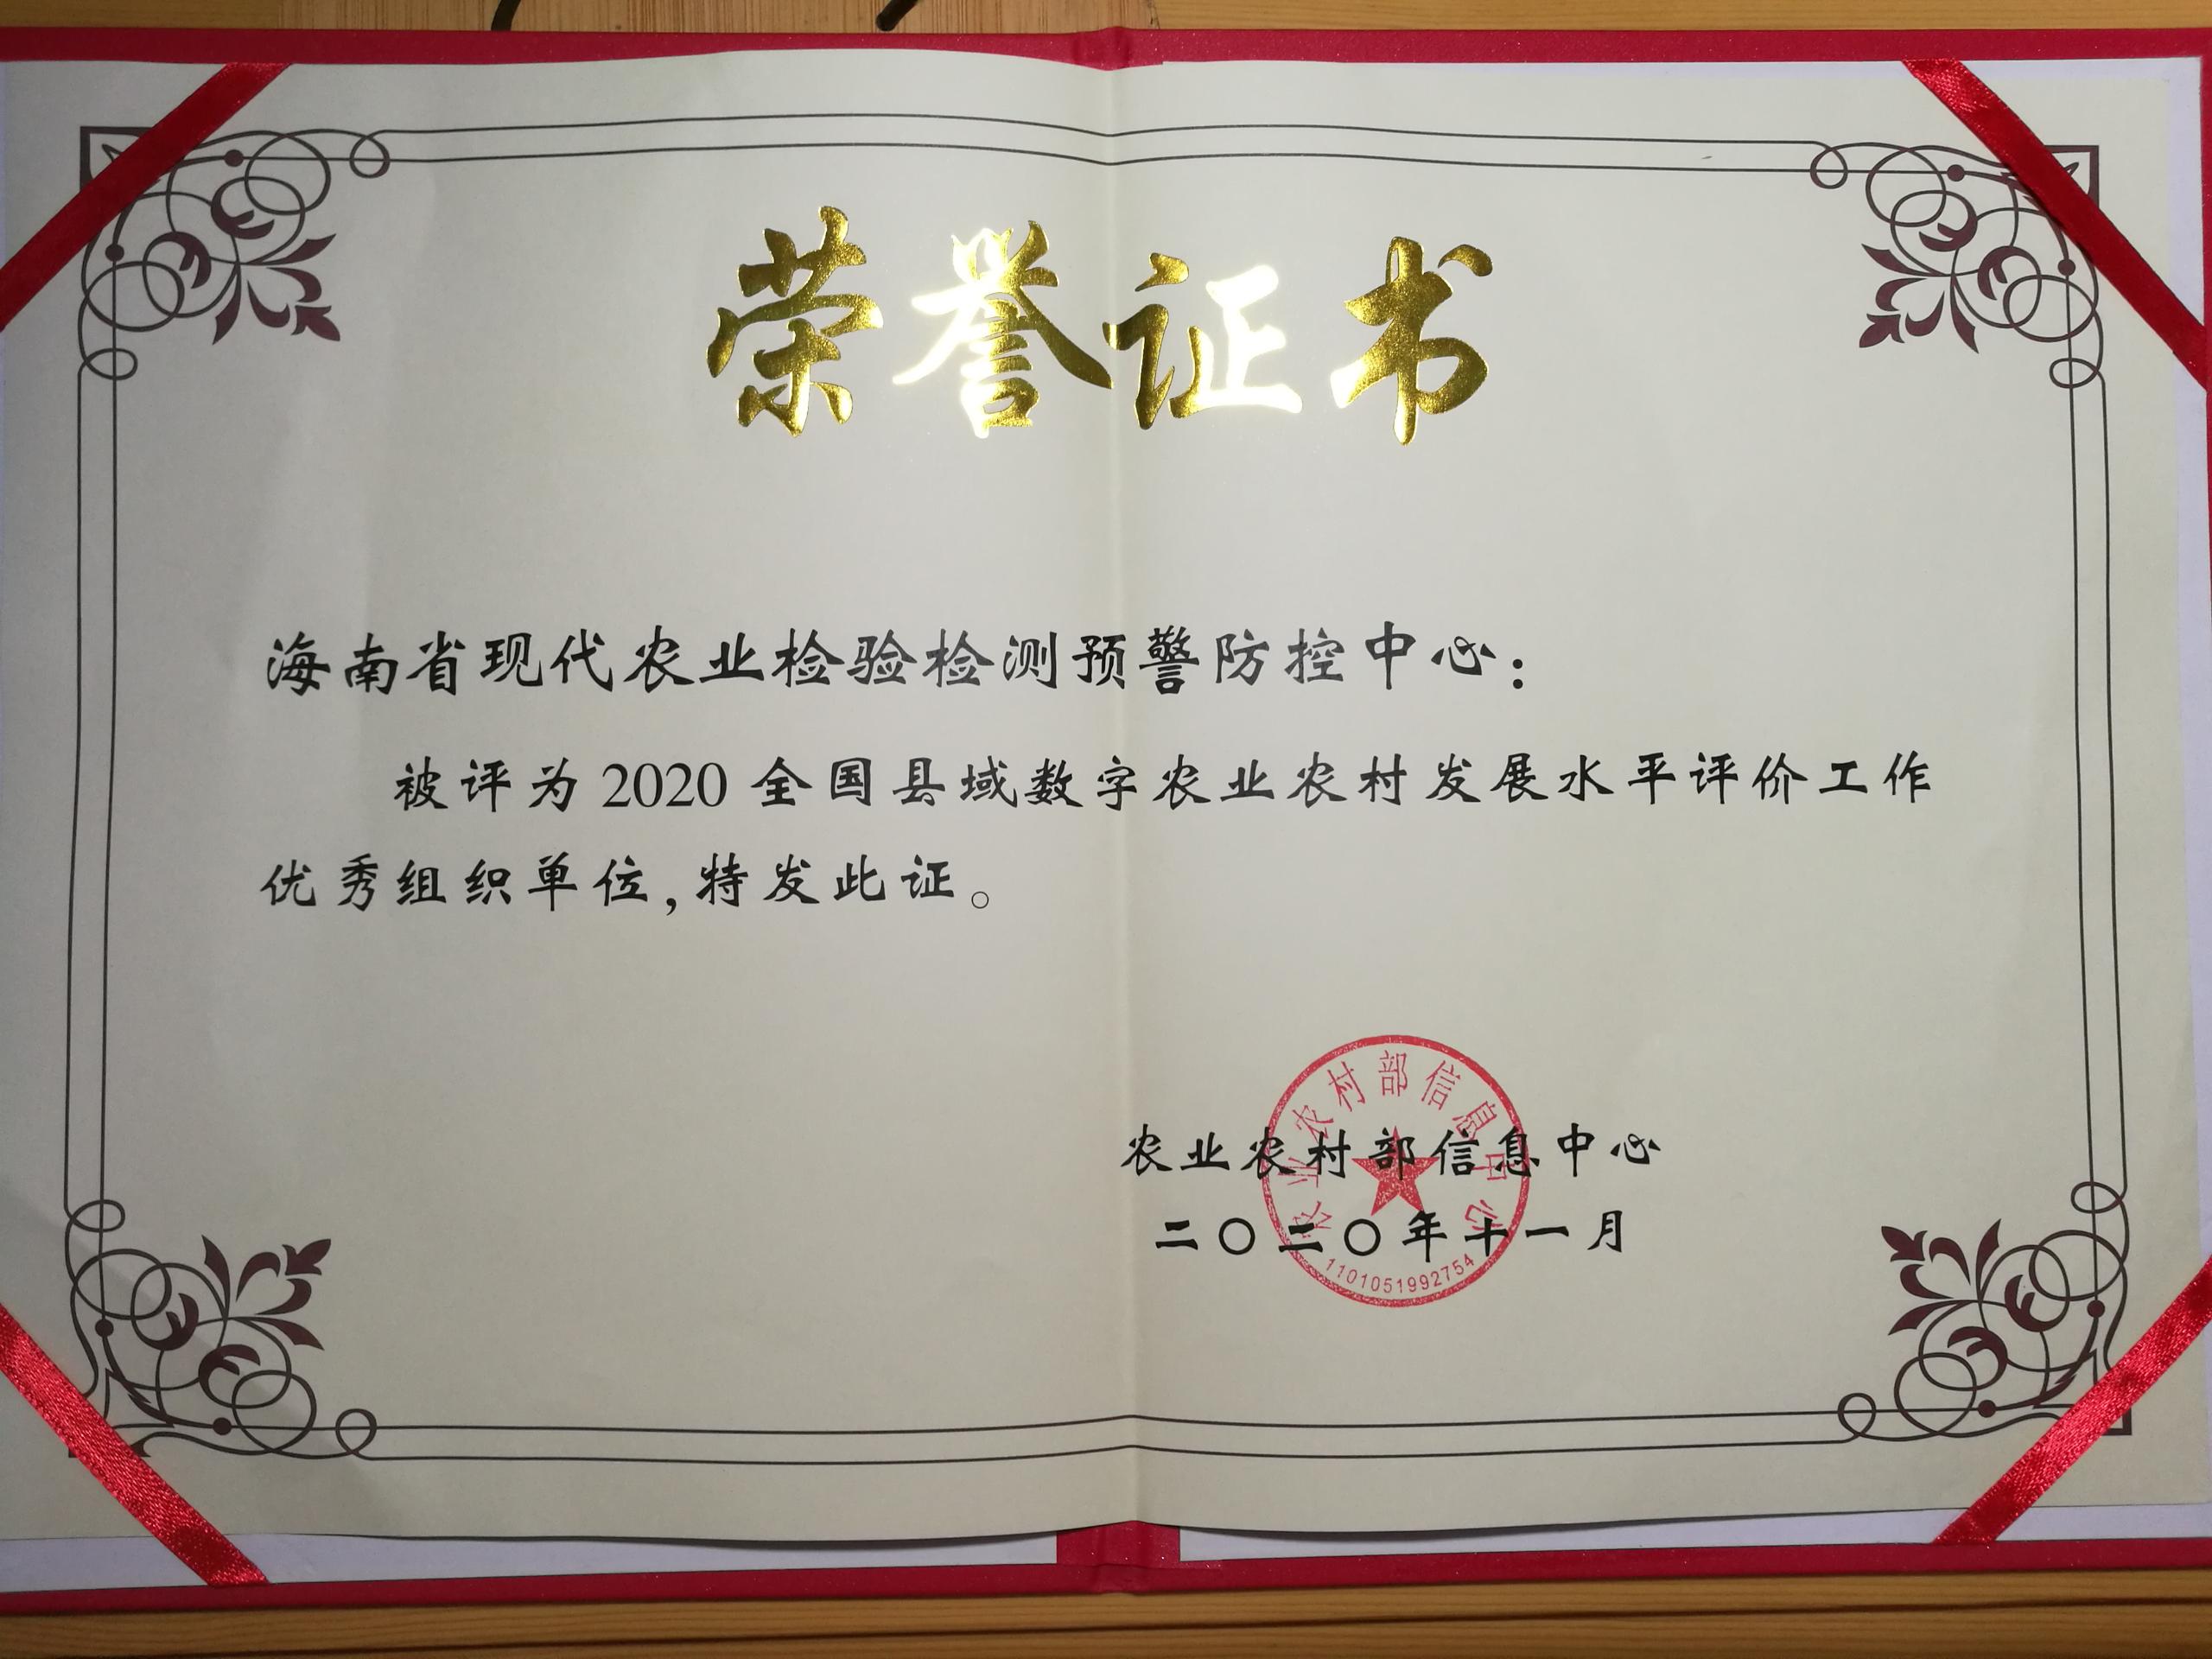 荣誉证书
海南省现代农业检验检测预警防控中心：
被评为2020全国县域数字农业农村发展水平评价工作
优秀组织单位,特发此证。
农业农村部信息中心
农业农村部信息中心
二〇二〇年十一月
1101051992754